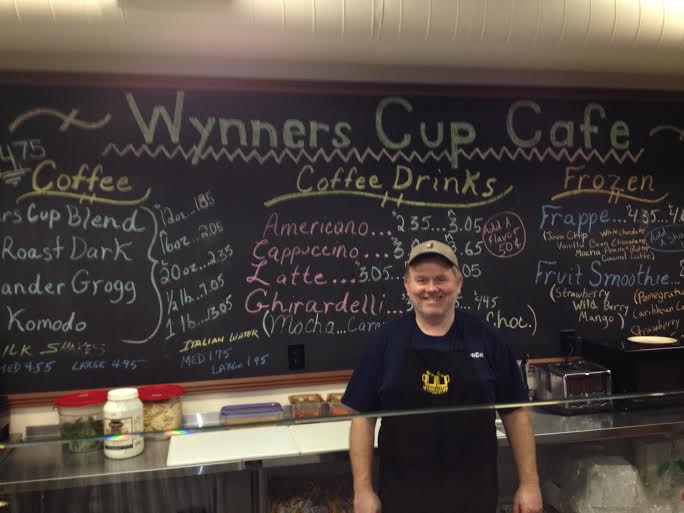 Wynners Cup Cafe
475
Coffee
rs Cup Blend
Roast Dark
ander Grogg
Komodo
12oz...1.85
16oz...2.05
20oz...2.35
1/2 lb...7.05
1 lb...13.05
ILK SHAKES
MED 4.55 LARGE 4.95
ITALIAN WATER
MED 1.75
LARGE 1.95
Coffee Drinks
Americano...$2.35...3.05
Cappuccino...3. .65
Latte...3.05 05
Ghirardelli... 4.45
(Mocha...Car hoc.)
Add A
Flavor
50¢
Frozen
Frappe...$4.35...4.8
(Java Chip White Chocolate
Vanilla Bean Chocolate
Mocha
Caramel Latte)
Add A
Fruit Smoothie...
(Strawberry
Wild Berry
Mango)
(Pomegrana
Caribbean C
Strawberry